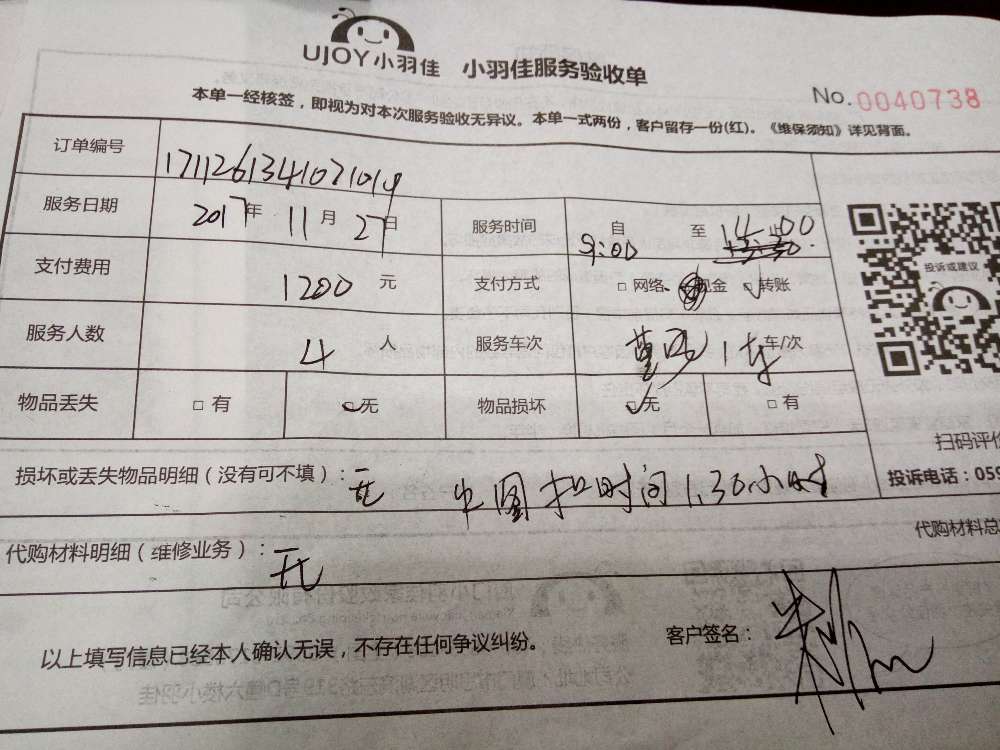 UJOY小羽佳 小羽佳服务验收单
No. 0040738
本单一经核签，即视为对本次服务验收无异议。本单一式两份，客户留存一份(红)。《维保须知》详见背面。
订单编号 1711261341071019
服务日期 2017年 11月 27日 服务时间 自 9:00 至 14:00
支付费用 1200 元 支付方式 □ 网络 现金 □ 转账
投诉或建议
服务人数 4 人 服务车次 1车 车/次
物品丢失 □ 有 □ 无 物品损坏 □ 无 □ 有
扫码评价
损坏或丢失物品明细（没有可不填）：无 中 扣时间1.30小时
投诉电话：059
代购材料明细（维修业务）：无
代购材料总
以上填写信息已经本人确认无误，不存在任何争议纠纷。 客户签名：